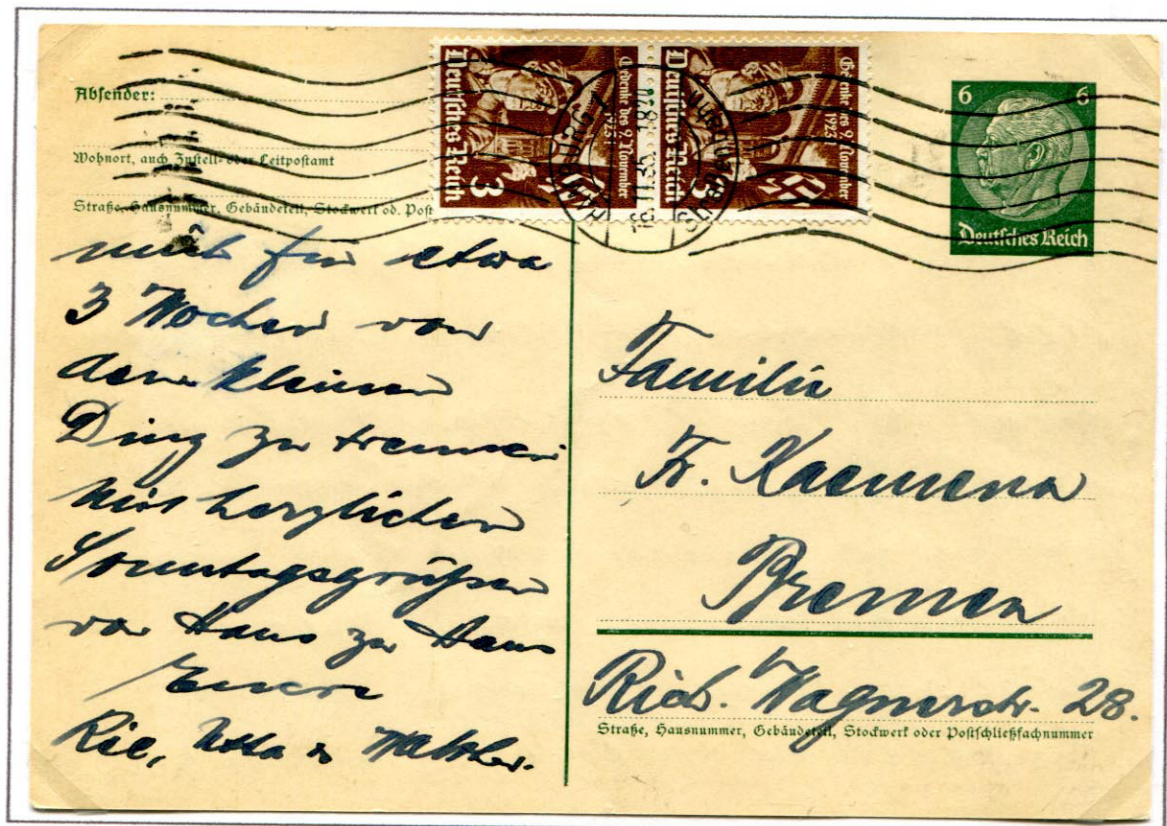 Absender:
Wohnort, auch Zustell- oder Leitpostamt
Straße, Hausnummer, Gebäudeteil, Stockwerk od. Post
Gedenke des 9. November 1923
Deutsches Reich
3
Gedenke des 9. November 1923
Deutsches Reich
3
HAMBURG 1
35
6 6
Deutsches Reich
mich für etwa
3 Wochen von
dem kleinen
Ding zu trennen
Mit herzlichen
Sonntagsgrüßen
von Haus zu Haus
Euere
Walther.
Familie
Fr. Kaemena
Bremen
Rich. Wagnerstr. 28.
Straße, Hausnummer, Gebäudeteil, Stockwerk oder Postschließfachnummer